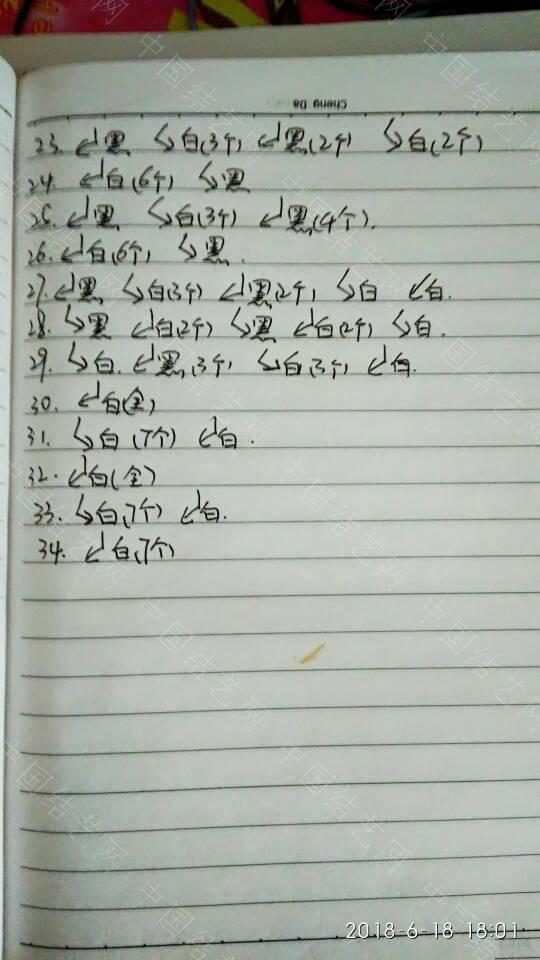 Cheng Da
23. ↲黑 ↳白(3个) ↲黑(2个) ↳白(2个)
24. ↲白(6个) ↳黑
25. ↲黑 ↳白(3个) ↲黑(4个).
26. ↲白(6个) ↳黑.
27. ↲黑 ↳白(3个) ↲黑(2个) ↳白 ↙白.
28. ↳黑 ↲白(2个) ↳黑 ↲白(2个) ↳白.
29. ↳白. ↲黑(3个) ↳白(3个) ↲白.
30. ↲白(全)
31. ↳白(7个) ↲白.
32. ↲白(全)
33. ↳白(7个) ↲白.
34. ↲白(7个)
中国结艺网
2018-6-18 18:01